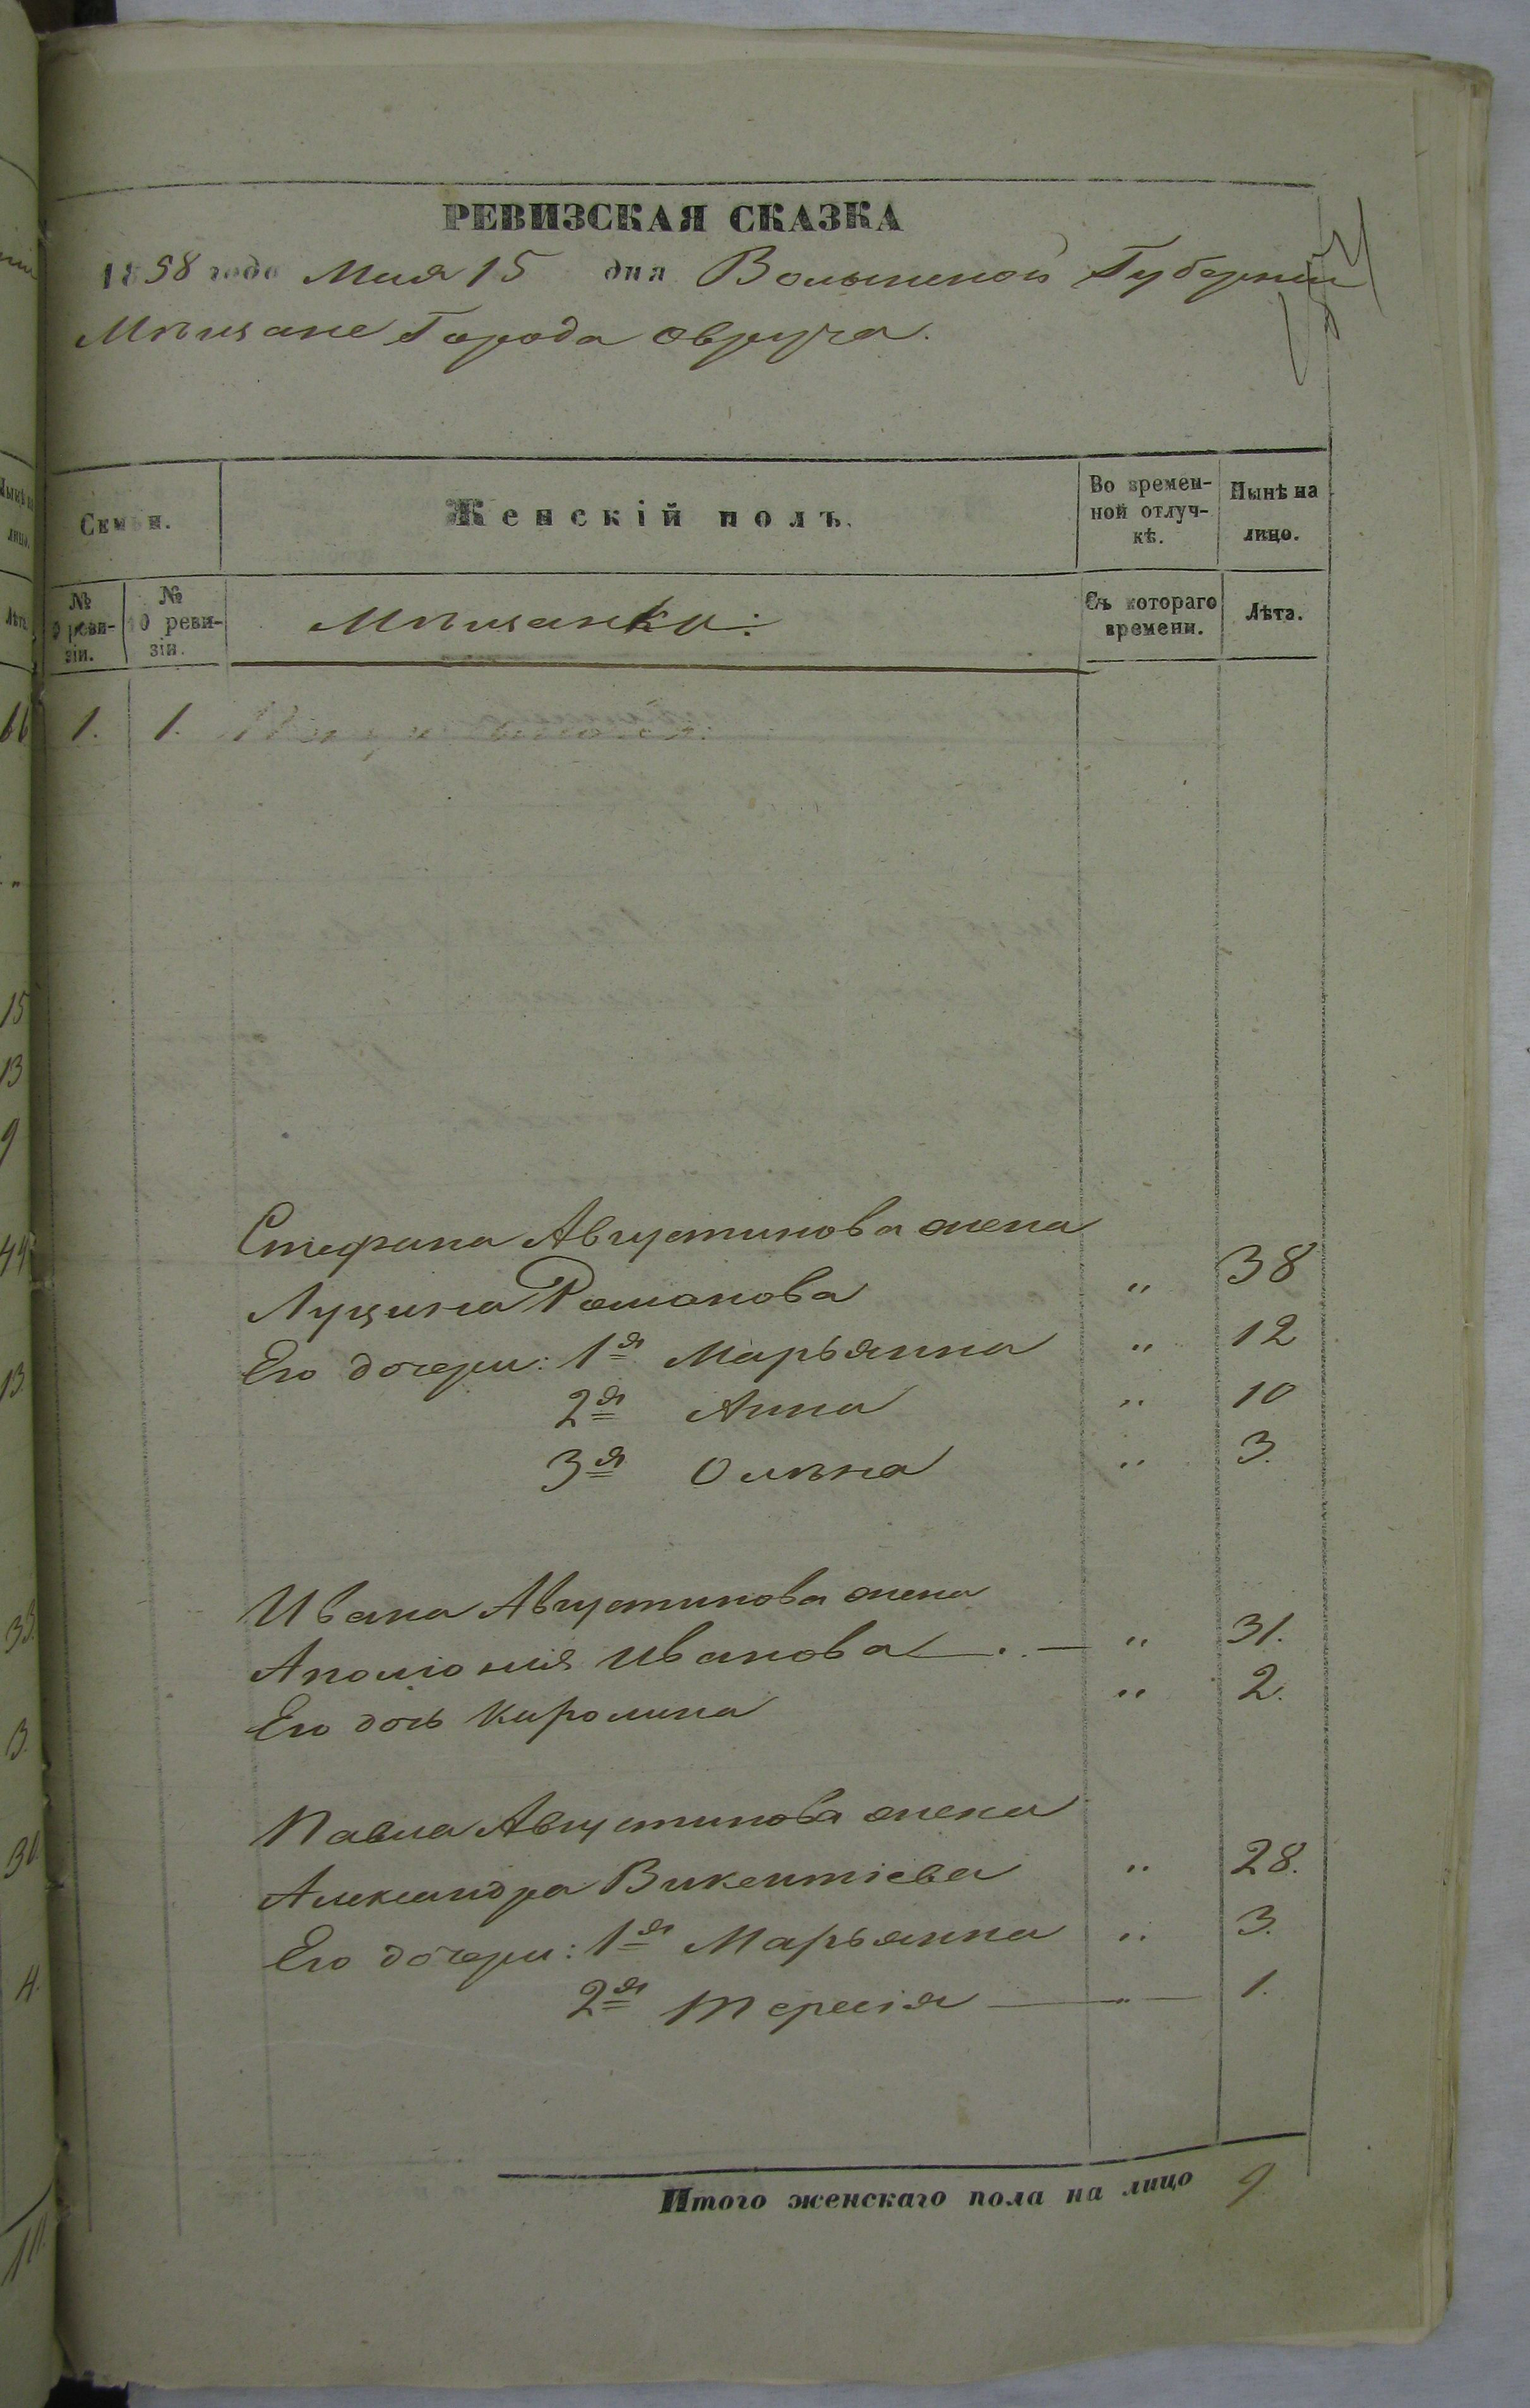 РЕВИЗСКАЯ СКАЗКА
1858 года Мая 15 дня Волынской Губернии
Мѣщане Города Овруча.
Семьи.
Женскій полъ.
Во времен-
ной отлуч-
кѣ.
Нынѣ на
лицо.
№
9 реви-
зіи.
№
10 реви-
зіи.
Мѣщанки:
Съ котораго
времени.
Лѣта.
1. 1.
Стефана Августинова жена
Луцина Романова " 38
Его дочери: 1я Марьянна " 12
2я Анна " 10
3я Олѣна " 3.
Ивана Августинова жена
Аполіонія Иванова " 31.
Его дочь Каролина " 2.
Павла Августинова жена
Александра Викентіева " 28.
Его дочери: 1я Марьянна " 3.
2я Тересія " 1.
Итого женскаго пола на лицо 9